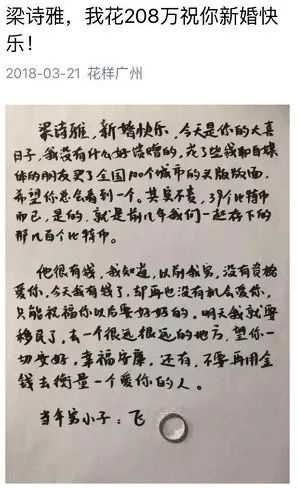 梁诗雅，我花208万祝你新婚快
乐！
2018-03-21 花样广州
梁诗雅，新婚快乐，今天是你的大喜
日子，我没有什么好馈赠的，花了些钱即自媒
体的朋友买了全国100个城市的头版版面，
希望你总会看到一个。其实不贵，39个比特币
而已，是的，就是前几年我们一起存下的
那几百个比特币。
他很有钱，我知道，以前我穷，没有资格
爱你，今天我有钱了，却再也没有机会爱你，
只能祝福你以后要好好的。明天我就要
移民了，去一个很远很远的地方，望你一
切安好，幸福安康，还有，不要再用金
钱去衡量一个爱你的人。
当年穷小子：飞